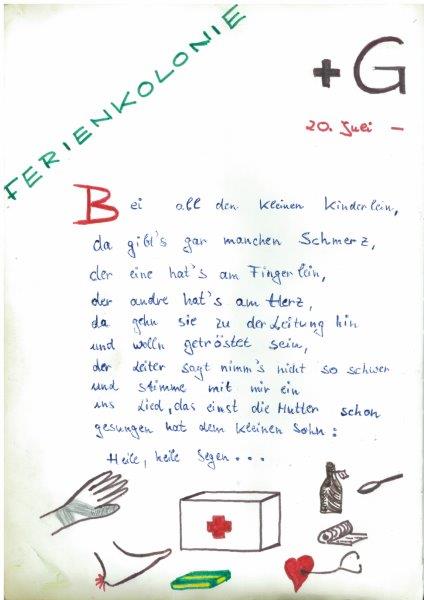 FERIENKOLONIE
+G
20. Juli –
Bei all den kleinen Kinderlein,
da gibt's gar manchen Schmerz,
der eine hat's am Fingerlein,
der andre hat's am Herz,
da gehn sie zu der Leitung hin
und wolln getröstet sein,
der Leiter sagt nimm's nicht so schwer
und stimme mit mir ein
ins Lied, das einst die Mutter schon
gesungen hat dem kleinen Sohn:
Heile, heile Segen...